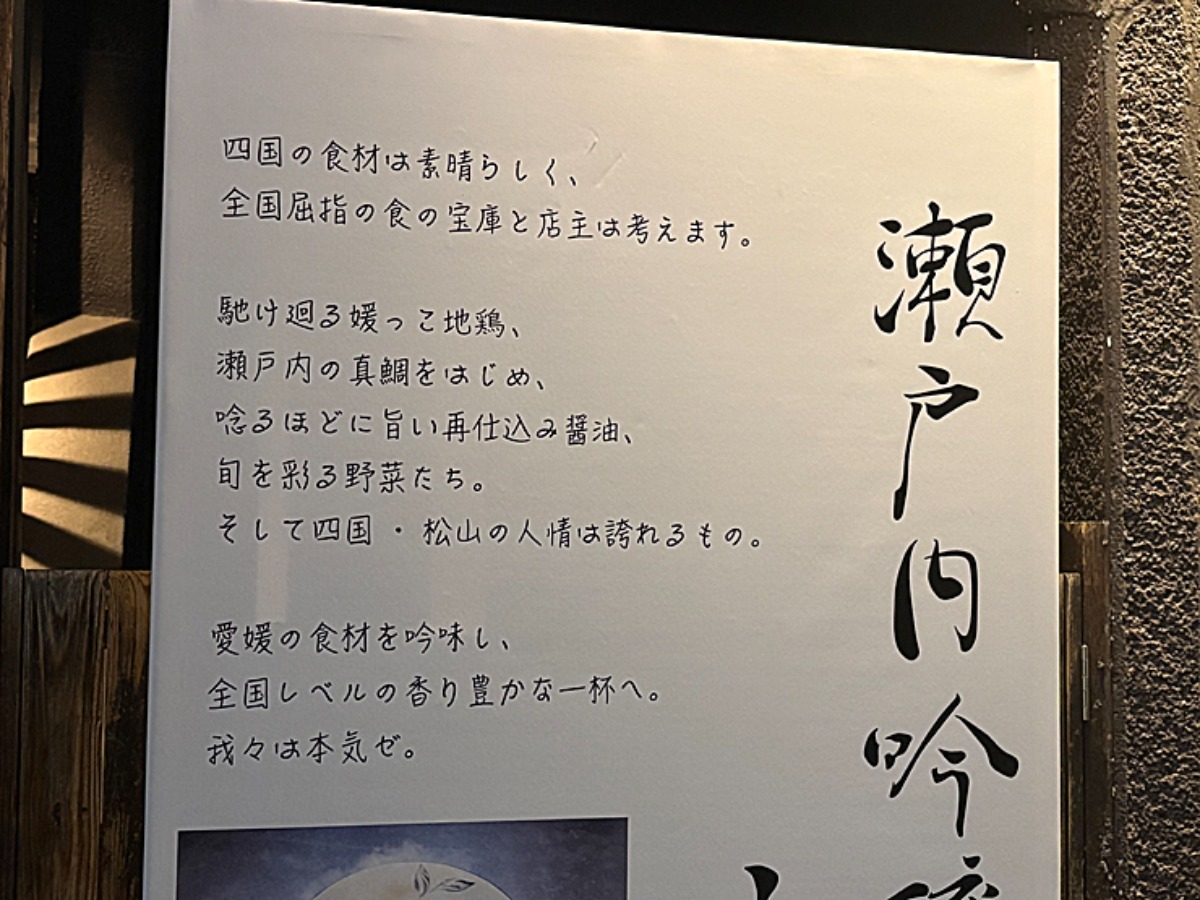 瀬戸内吟
四国の食材は素晴らしく、
全国屈指の食の宝庫と店主は考えます。
馳け廻る媛っこ地鶏、
瀬戸内の真鯛をはじめ、
唸るほどに旨い再仕込み醤油、
旬を彩る野菜たち。
そして四国・松山の人情は誇れるもの。
愛媛の食材を吟味し、
全国レベルの香り豊かな一杯へ。
我々は本気ぜ。